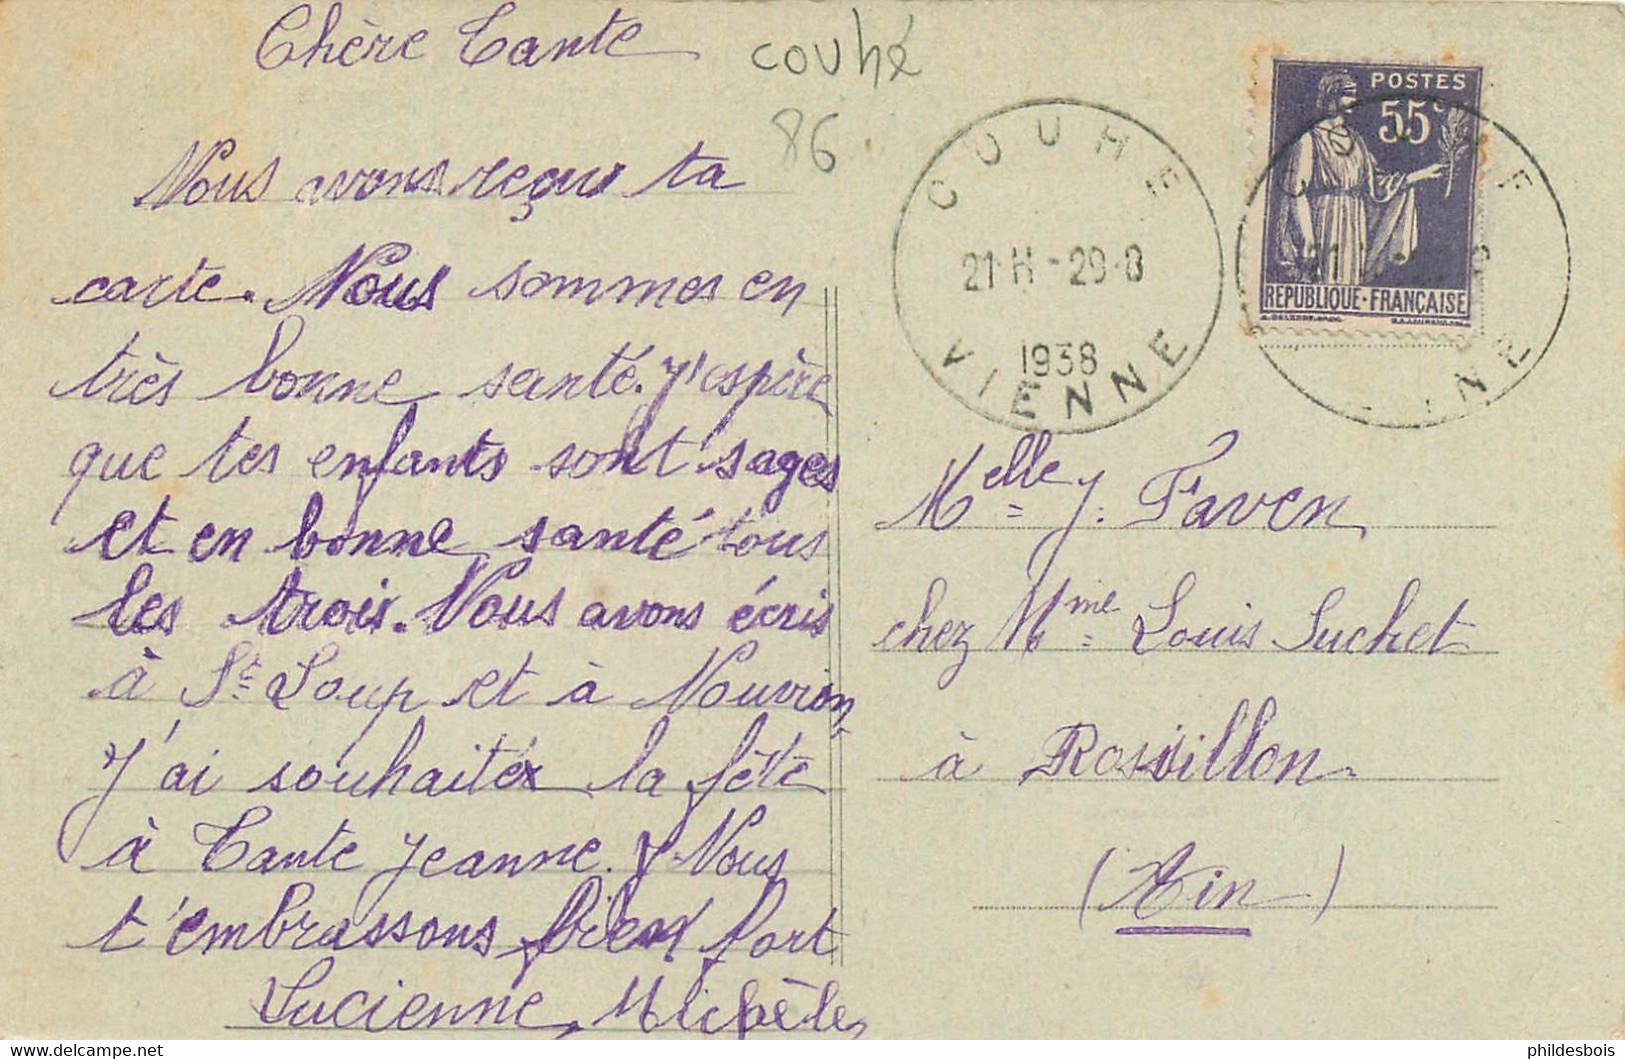 Chère Tante
couhé
86
Nous avons reçu ta
carte. Nous sommes en
très bonne santé. J'espère
que tes enfants sont sages
et en bonne santé tous
les trois. Nous avons écris
à St Loup et à Nouvion,
J'ai souhaité la fête
à Tante Jeanne. Nous
t'embrassons bien fort
Lucienne, Michèle,
COUHE
21 H - 29-8
1938
VIENNE
POSTES
55c
REPUBLIQUE-FRANÇAISE
Melle J. Faven
chez Mme Louis Suchet
à Rossillon
(Ain)
phildesbois